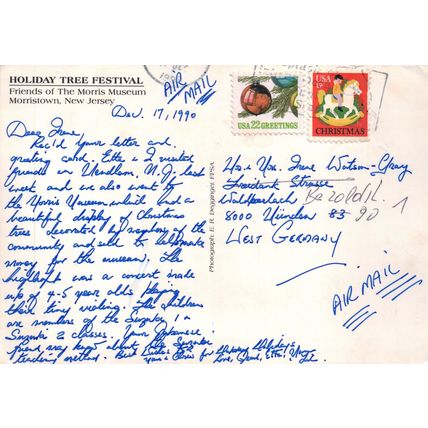 HOLIDAY TREE FESTIVAL
Friends of The Morris Museum
Morristown, New Jersey
AIR MAIL
Dec. 17, 1990
USA 22 GREETINGS
USA
CHRISTMAS
Dear Irene,
Rec'd your letter and
greeting card. Etta & I visited
friends in Mendham, N.J. last
week and we also went to
the Morris Museum which had a
beautiful display of Christmas
trees decorated by
community and sold to
money for the museum. The
highlight was a concert made
up of 4-5 year olds
their tiny violins. The children
are members of the Suzuki 1 &
Suzuki 2 classes. Your Japanese
friend may know about the Suzuki
teaching method. Best wishes for
for Holidays
Love,
Photograph: E. R. Degginger FPSA
Irene Watson-
Strasse
8000 München 83 90 1
WEST GERMANY
AIR MAIL